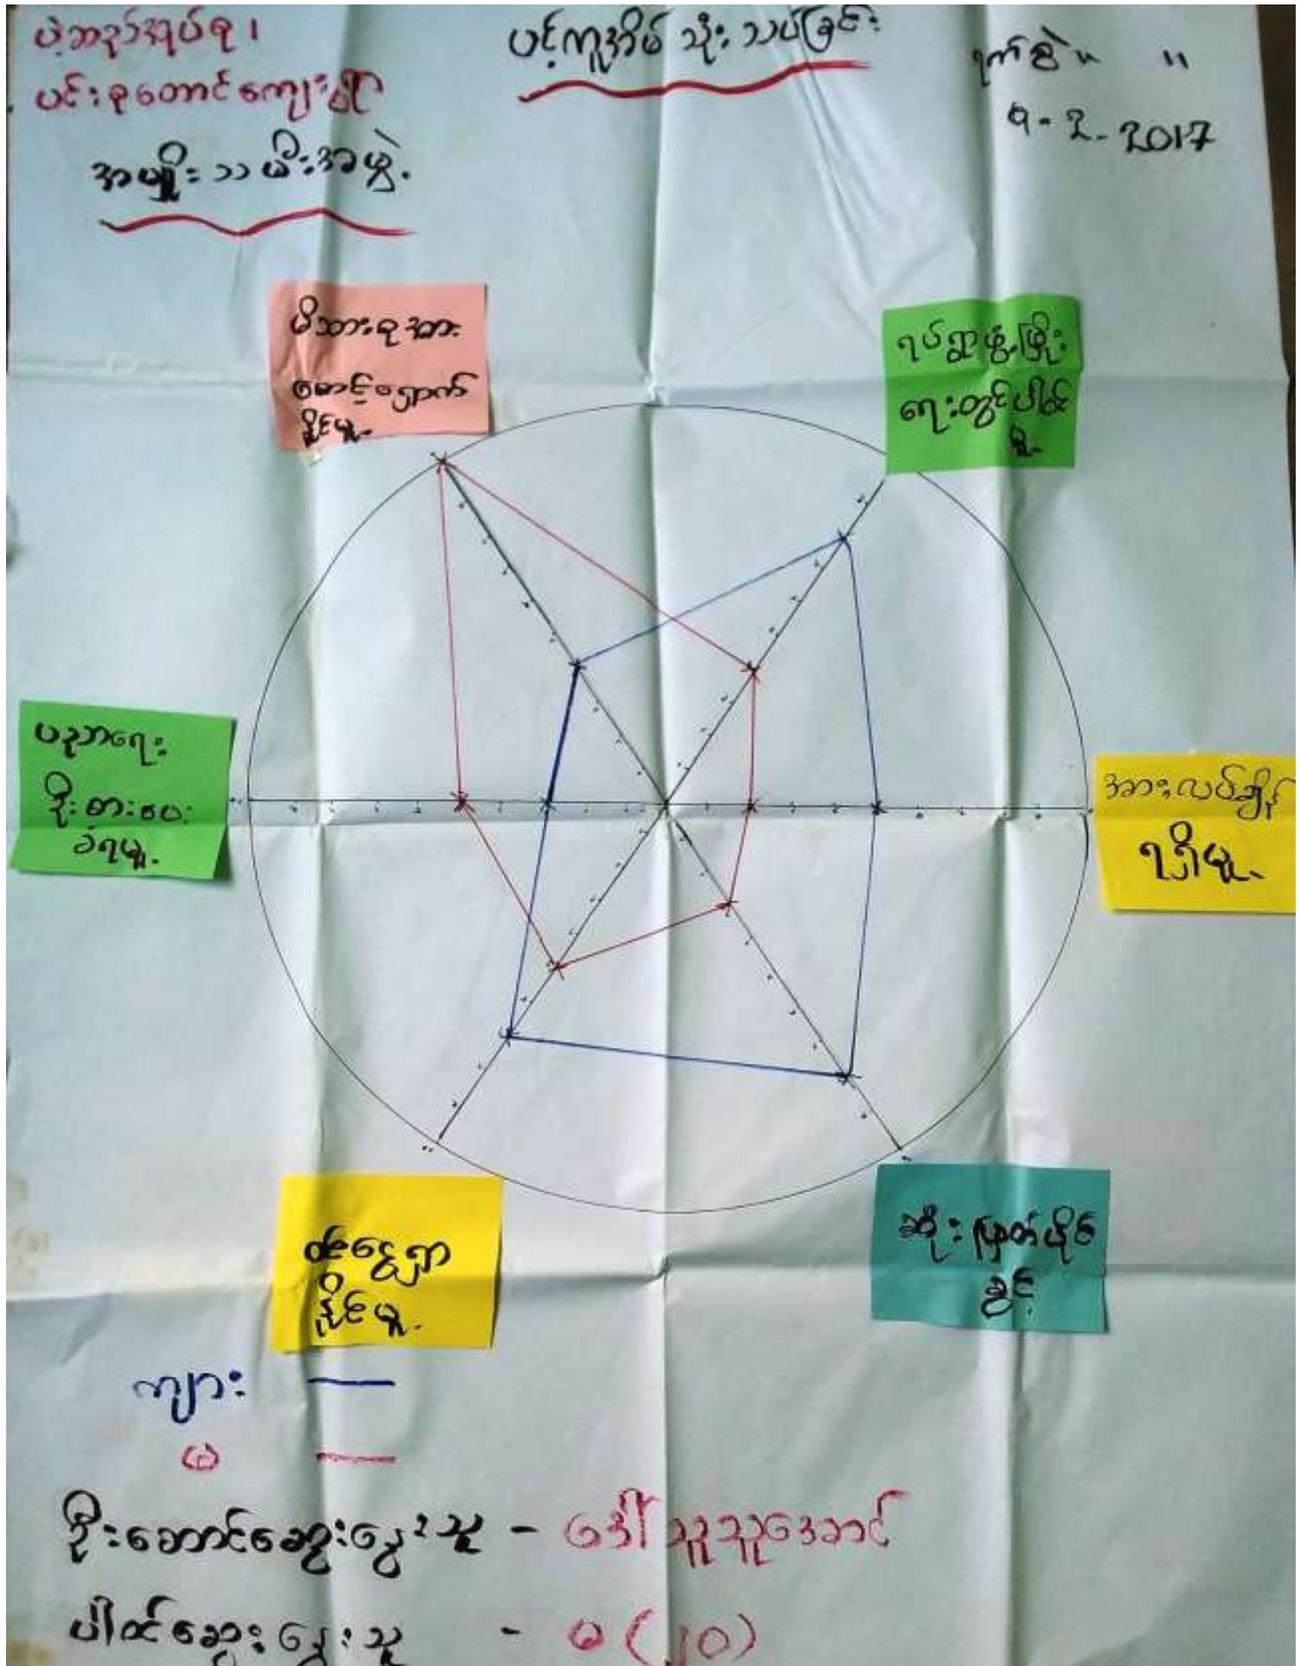 ပဲ့ဘည်အုပ်စု၊
ပင်းခုတောင်ကျေးရွာ
အမျိုးသမီးအဖွဲ့
ပင့်ကူအိမ် သုံးသပ်ခြင်း
ရက်စွဲ။ ။
9-2-2017
မိသားစုအား
စောင့်ရှောက်
နိုင်မှု
ရပ်ရွာဖွံ့ဖြိုး
ရေးတွင်ပါဝင်
မှု
ပညာရေး
ဦးစားပေး
ခံရမှု
အားလပ်ချိန်
ရရှိမှု
ဝင်ငွေရှာ
နိုင်မှု
ဆုံးဖြတ်ပိုင်
ခွင့်
ကျား
မ
ဦးဆောင်ဆွေးနွေးသူ - ဒေါ်သူသူအောင်
ပါဝင်ဆွေးနွေးသူ - မ (၂၀)